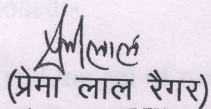 (प्रेमा लाल रैगर)